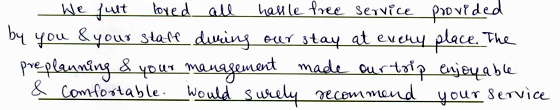 We just loved all hassle free service provided
by you & your staff during our stay at every place. The
preplanning & your management made our trip enjoyable
& comfortable. Would surely recommend your service